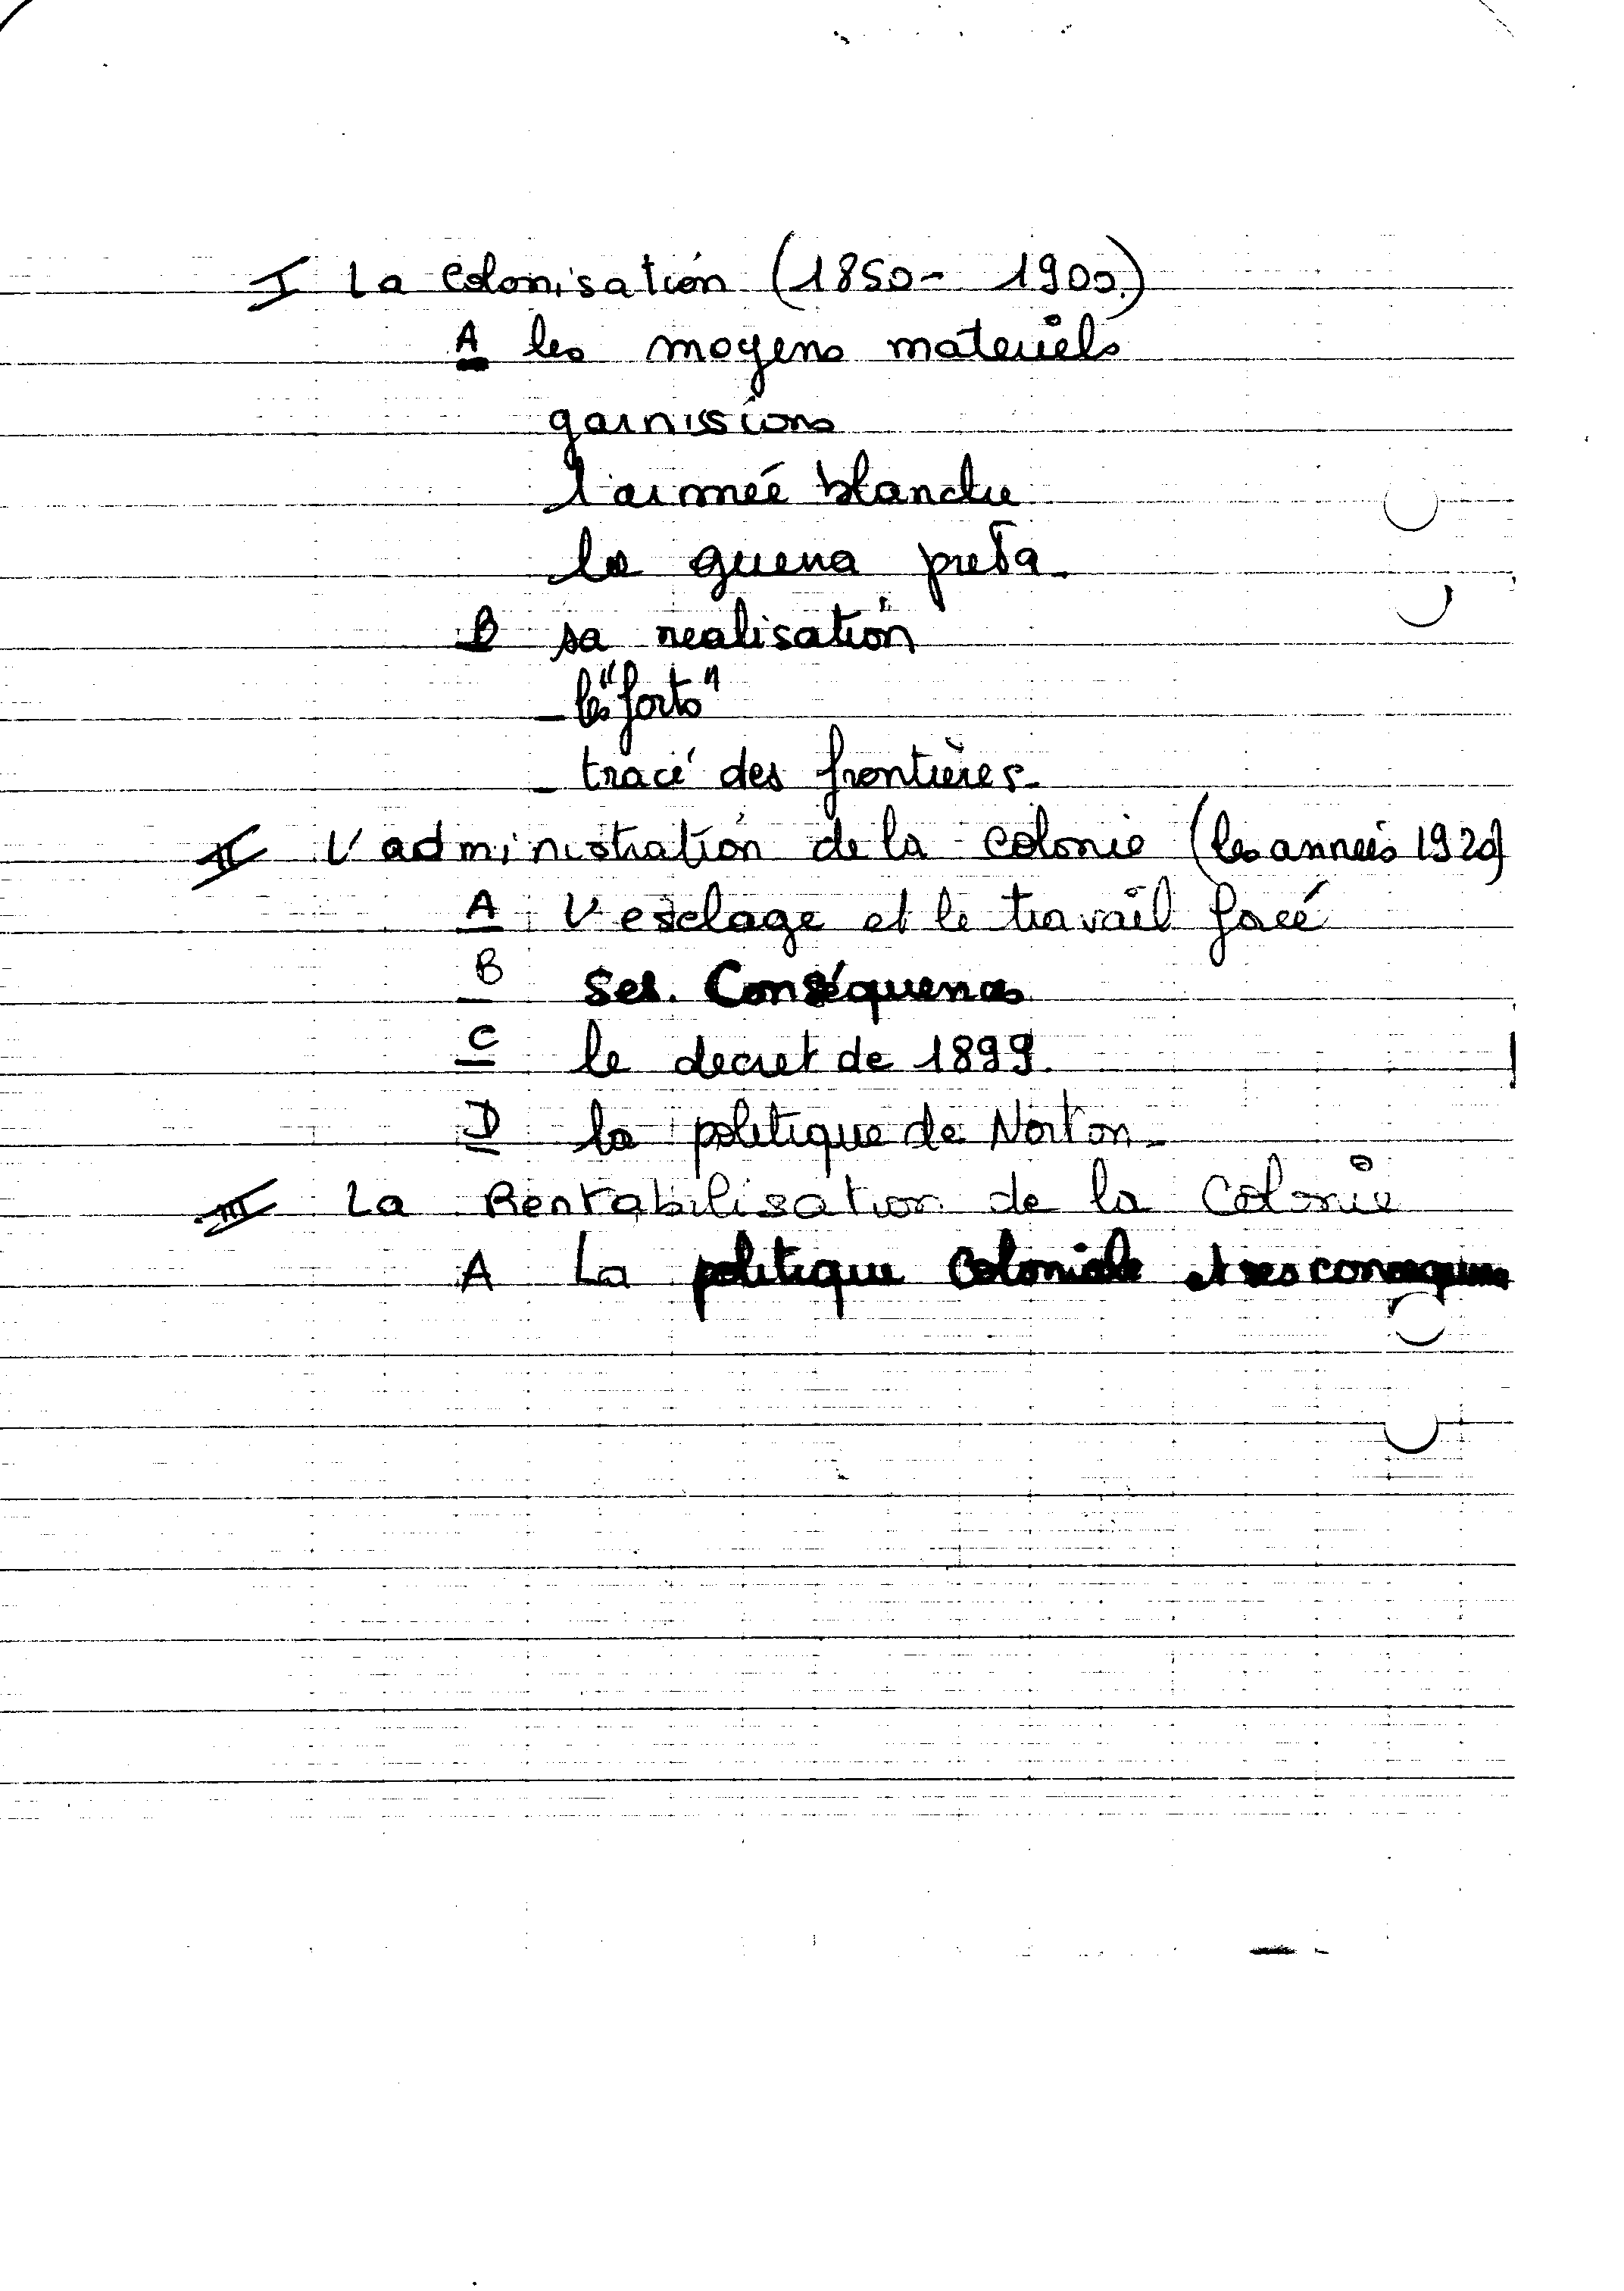 I La colonisation (1850- 1900.)
A les moyens materiels
garnissions
l'armée blanche
la guerra preta.
B sa realisation
- les "forts"
- tracé des frontières.
II L'administration de la colonie (les années 1920)
A L'esclage et le travail forcé
B ses. Conséquences
C le decret de 1899.
D la politique de Norton.
III La Rentabilisation de la Colonie
A La politique coloniale et ses conséquences